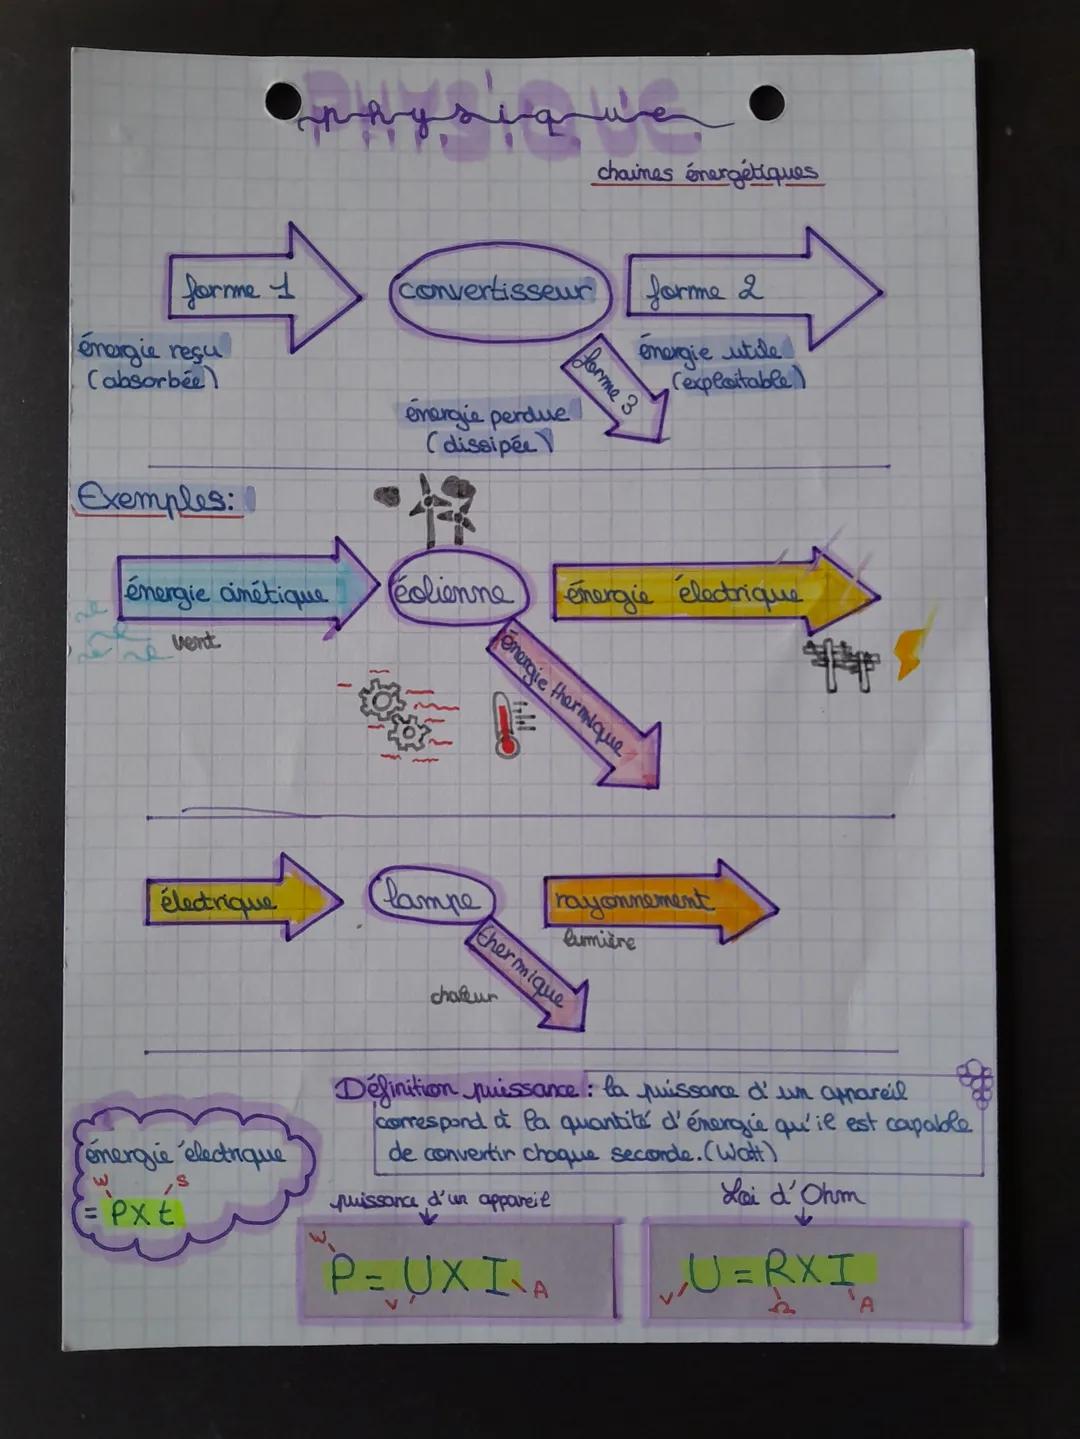 PHYSIQUE
physique
chaines énergétiques
forme 1
convertisseur
forme 2
énergie reçu
(absorbée)
forme 3
énergie utile
(exploitable)
énergie perdue
(dissipée)
Exemples:
énergie cinétique
éolienne
énergie électrique
vent
énergie thermique
électrique
lampe
rayonnement
lumière
thermique
chaleur
Définition puissance : la puissance d'un appareil
correspond à la quantité d'énergie qu'il est capable
de convertir chaque seconde. (Watt)
énergie électrique
W S
= P X t
puissance d'un appareil
W
P = U X I
V A
Loi d'Ohm
U = R X I
V Ω A